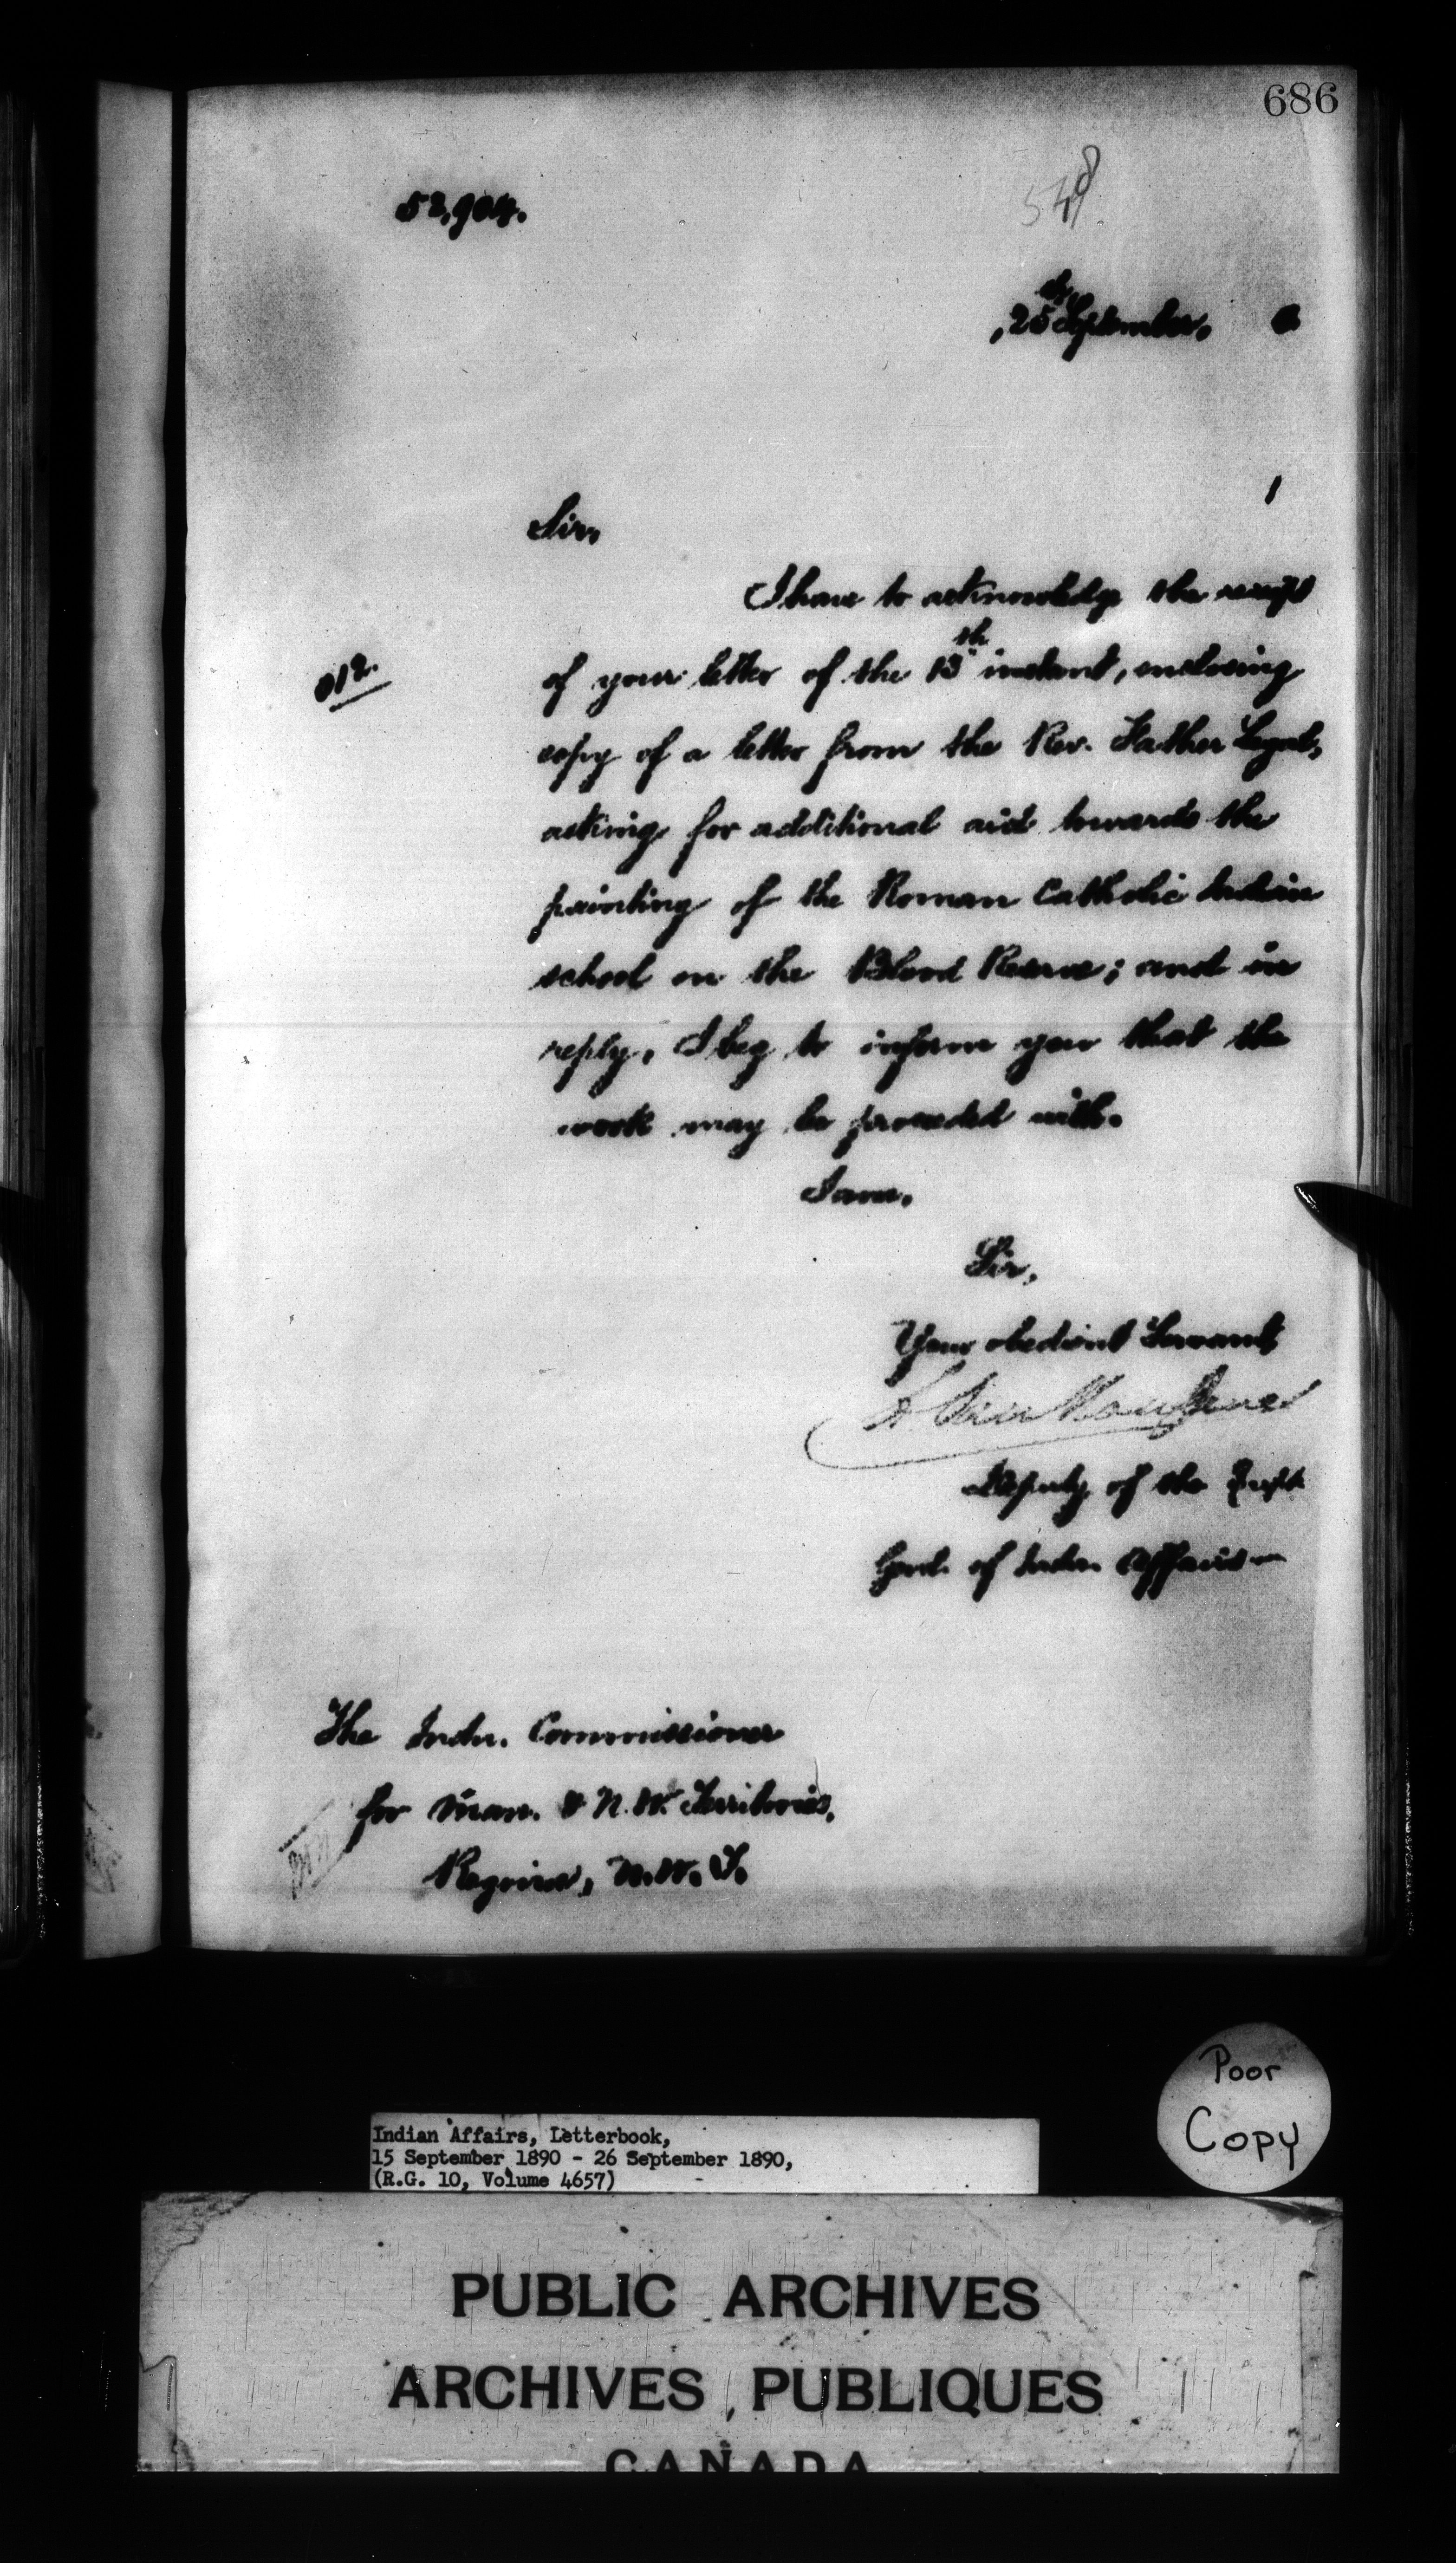 686
52,904.
548
25th September, 0
Sir,
I have to acknowledge the receipt
912.
of your letter of the 13th instant, enclosing
copy of a letter from the Rev. Father Legal,
asking for additional aid towards the
painting of the Roman Catholic Indian
school on the Blood Reserve; and in
reply, I beg to inform you that the
work may be proceeded with.
I am,
Sir,
Your obedient Servant
L. Vankoughnet
Deputy of the Supt.
Genl. of Indn. Affairs
The Indn. Commissioner
for Man. & N.W. Territories,
Regina, N.W.T.
Poor
Copy
Indian Affairs, Letterbook,
15 September 1890 - 26 September 1890,
(R.G. 10, Volume 4657)
PUBLIC ARCHIVES
ARCHIVES PUBLIQUES
CANADA